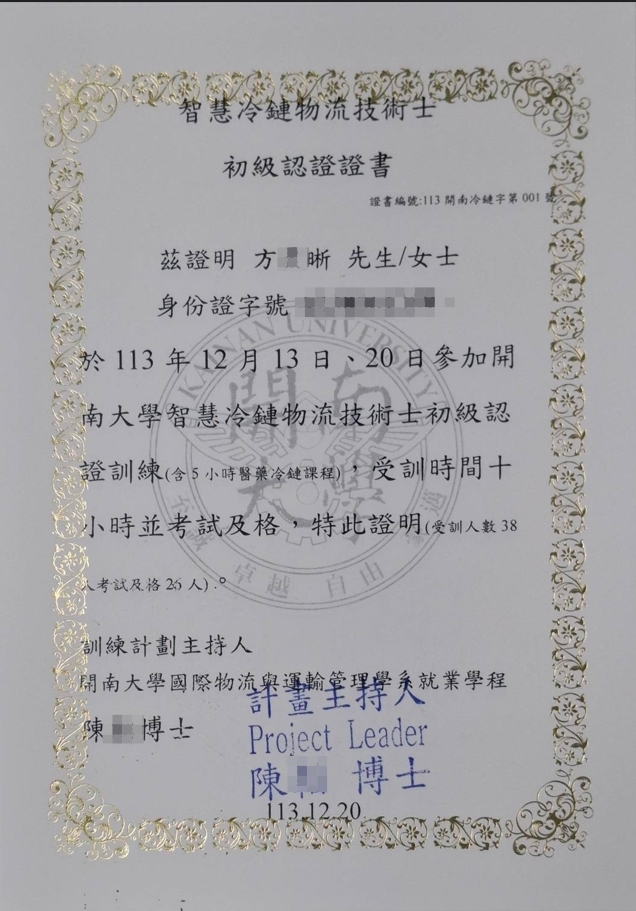 智慧冷鏈物流技術士
初級認證證書
證書編號:113開南冷鏈字第001號
茲證明 方 晰 先生/女士
身份證字號
於113年12月13日、20日參加開
南大學智慧冷鏈物流技術士初級認
證訓練(含5小時醫藥冷鏈課程)，受訓時間十
小時並考試及格，特此證明(受訓人數38
人考試及格26人).。
KAINAN UNIVERSITY
開南
大學
卓越 自由
訓練計劃主持人
開南大學國際物流與運輸管理學系就業學程
陳 博士
計畫主持人
Project Leader
陳 博士
113.12.20